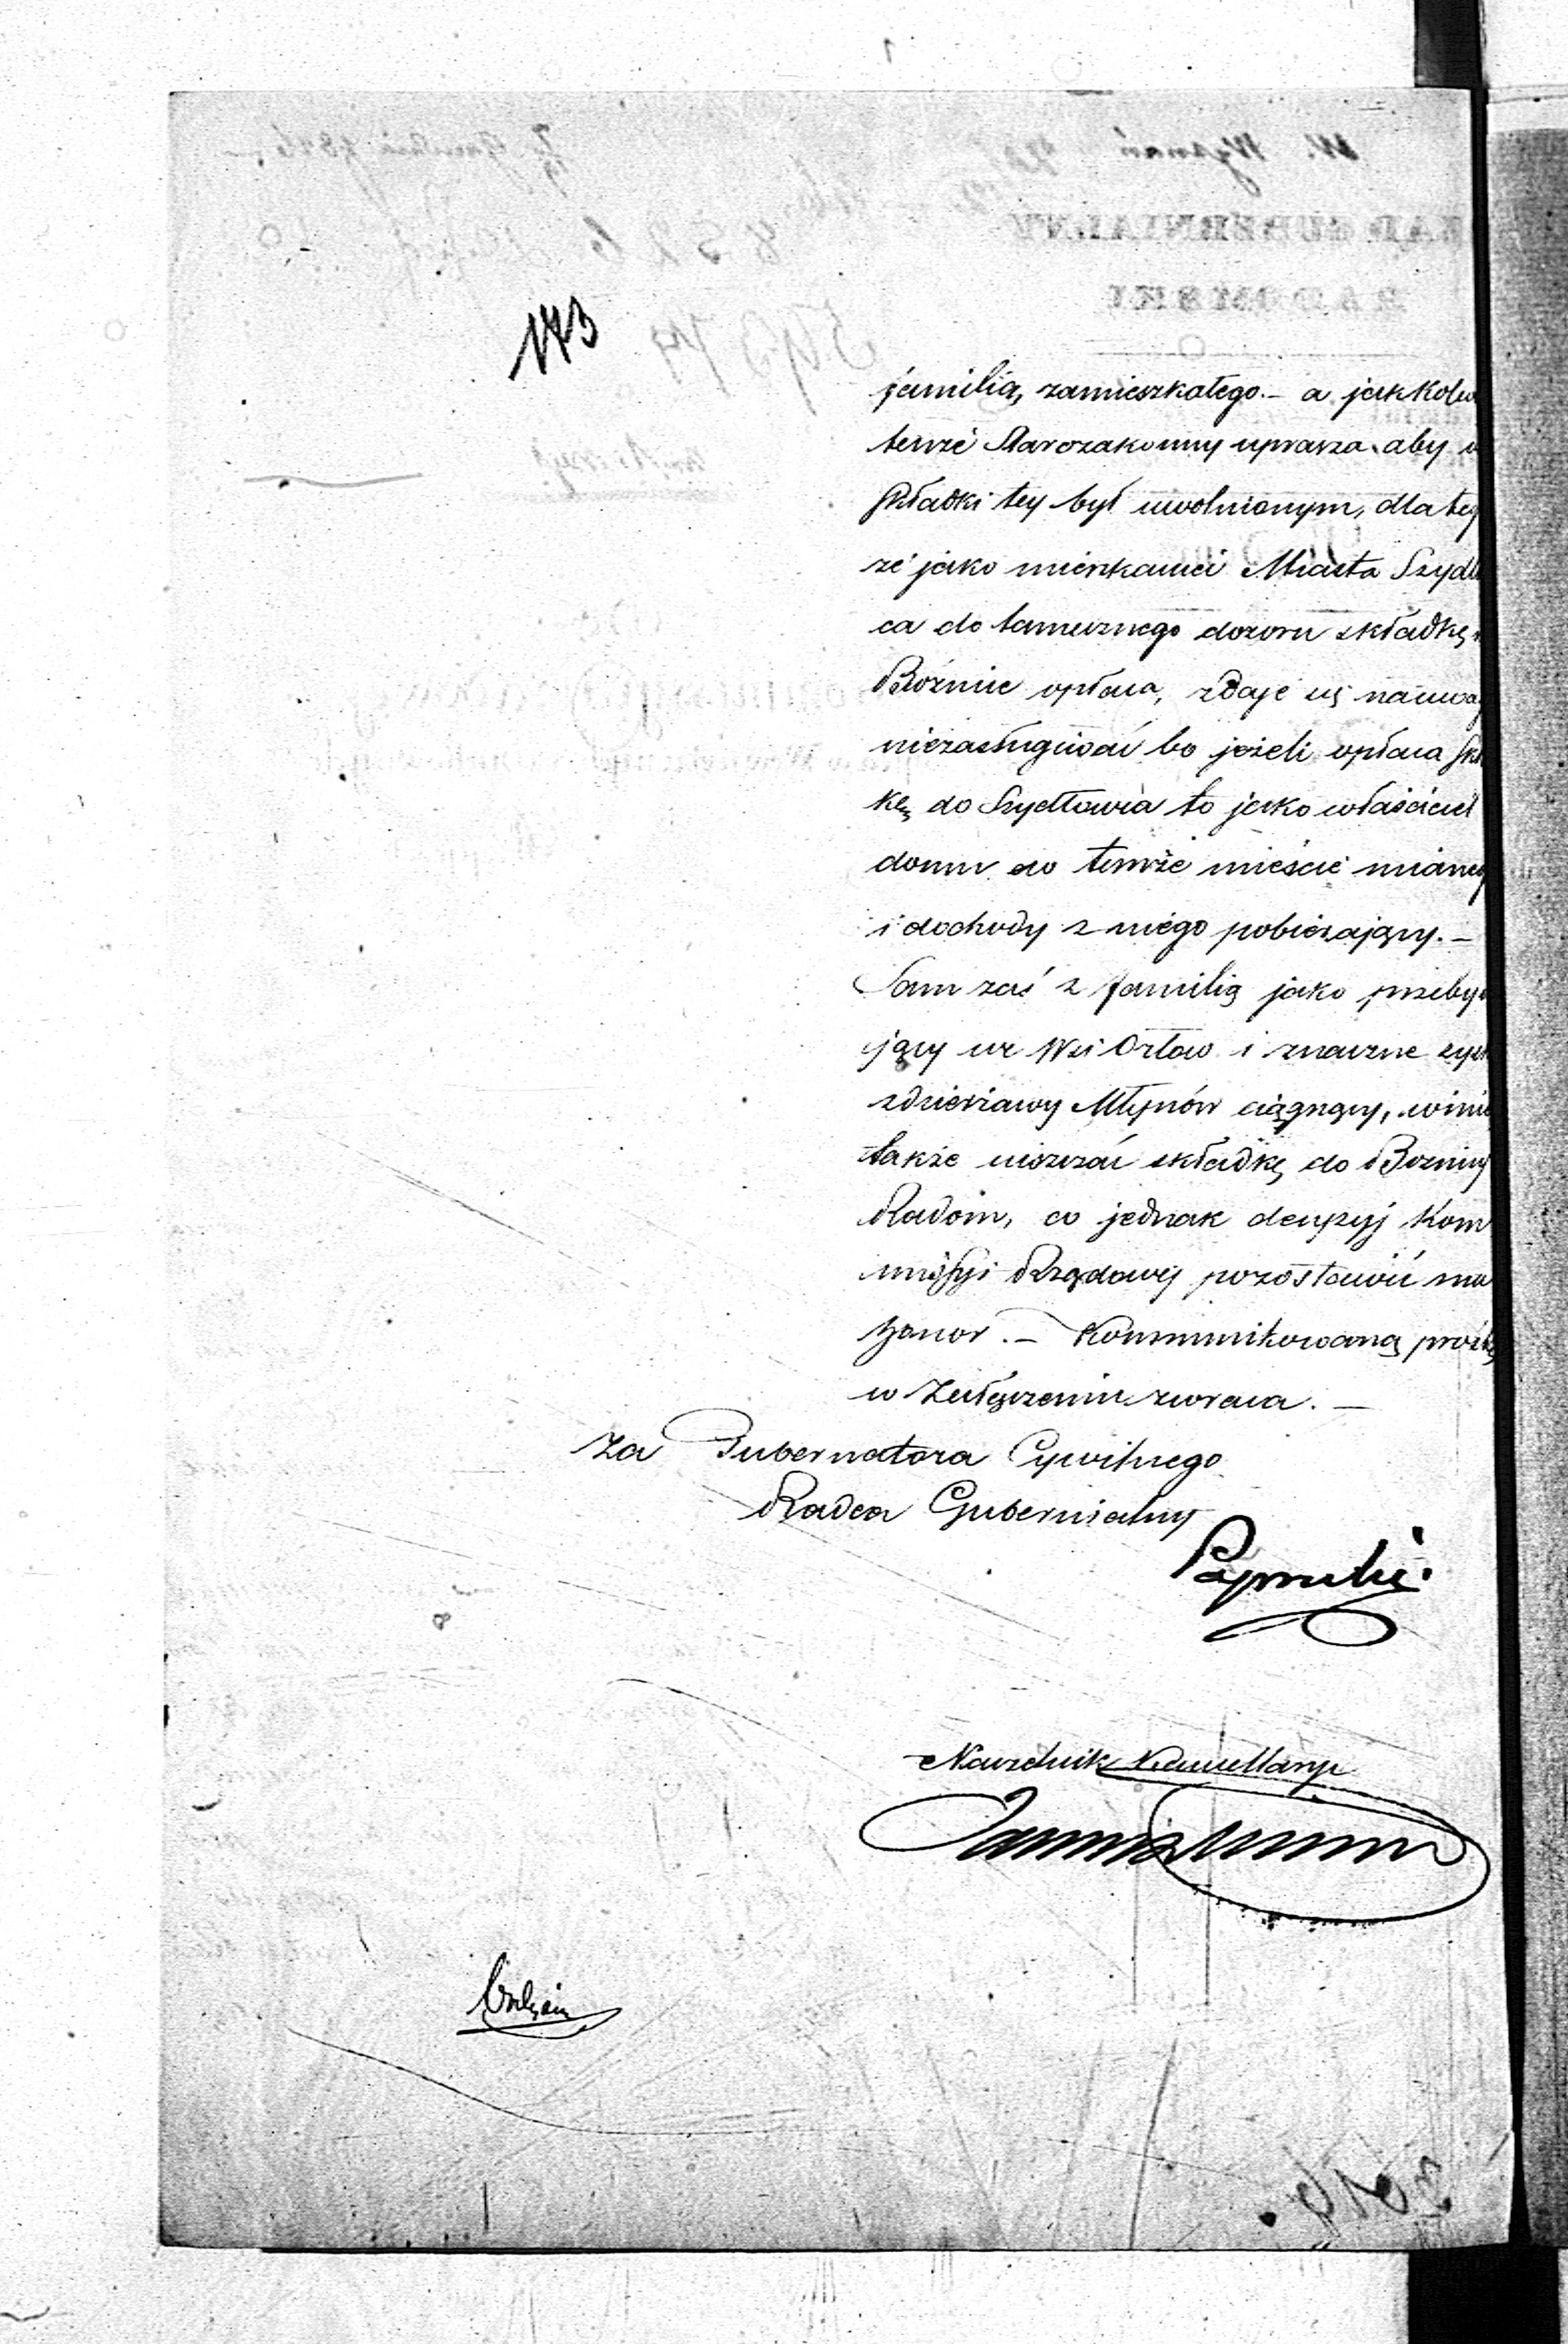 173
familią, zamieszkałego. – a jakkolw
tenże Starozakonny uprasza aby o
składki tey był uwolnionym, dla tey
że jako mieszkaniec Miasta Szydło
ca do tamecznego dozoru składkę
Bóżnicę opłaca, zdaje się na uwag
niezasługiwać bo jeżeli opłaca skł
kę do Szydłowca to jako właściciel
domu w temże mieście mianeg
i dochody z niego pobierający. –
Sam zaś z familią jako przebyw
ający we Wsi Orłów i znaczne zysk
z dzierżawy Młynów ciągnący, winie
także uiszczać składkę do Bożnicy
Radom, co jednak decyzyj Kom
missyi Rządowej pozostawić ma
honor. – Kommunikowaną prośbę
w załączeniu zwraca. –
Za Gubernatora Cywilnego
Radca Gubernialny
Naczelnik Kancellaryi